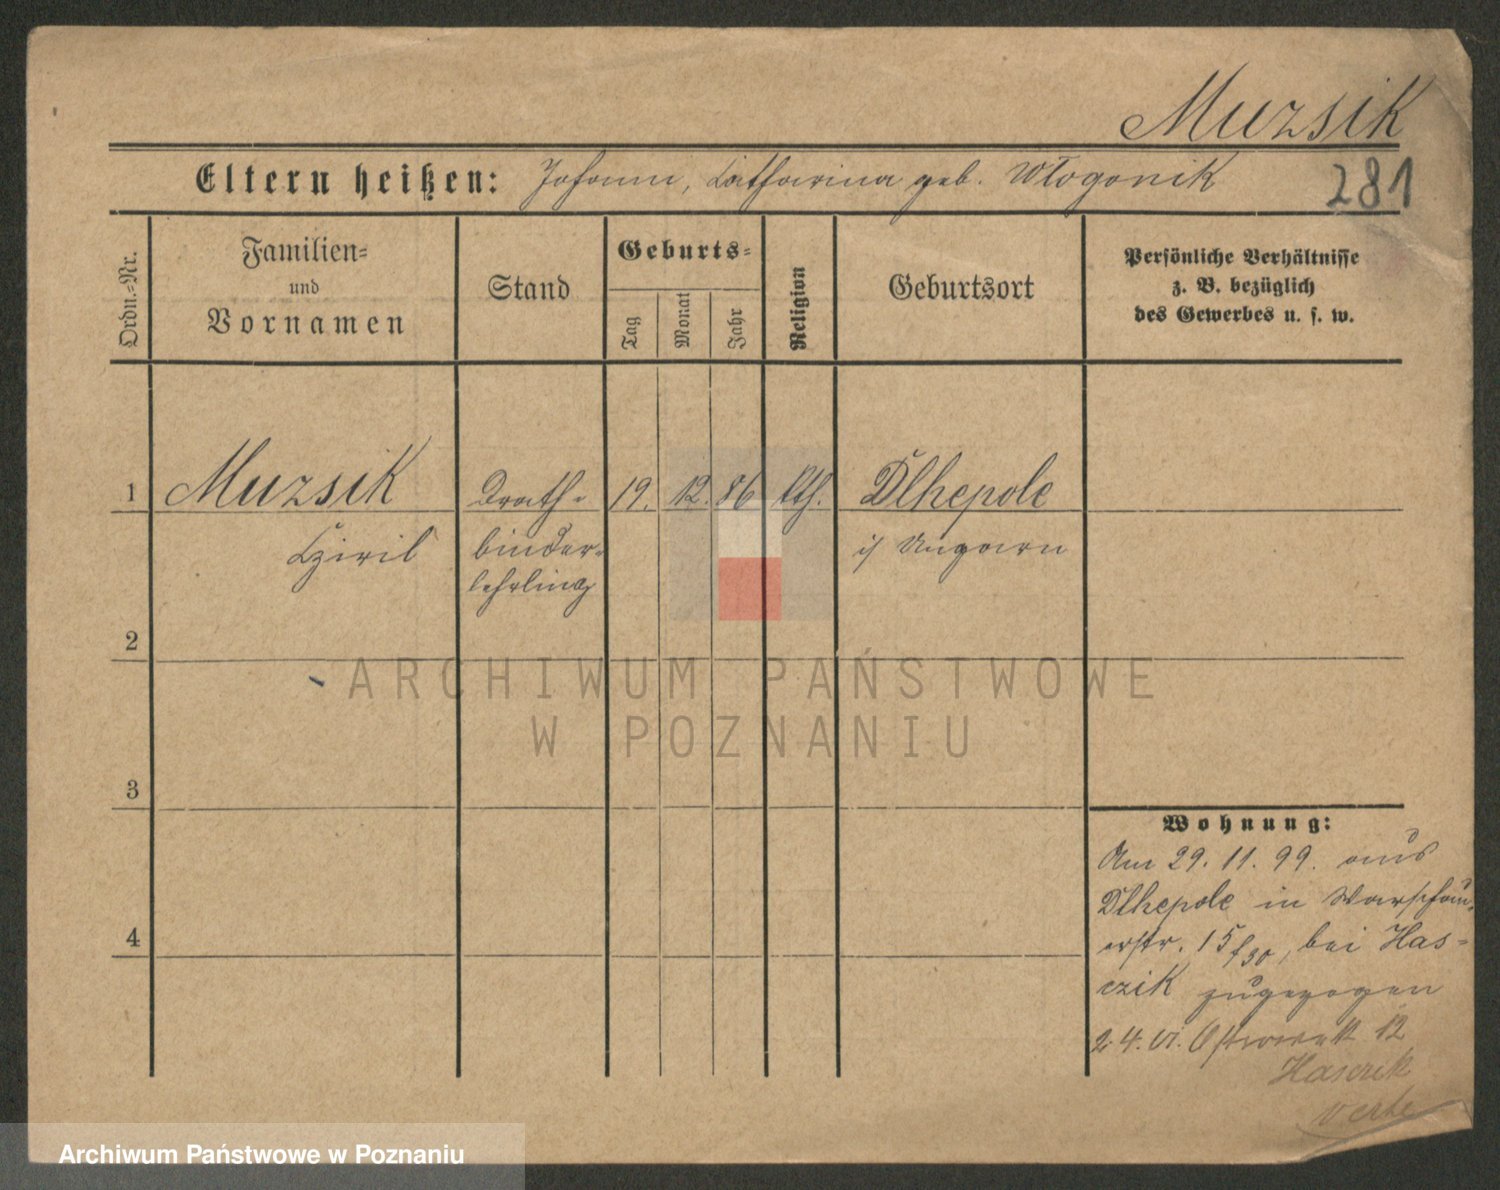 Muzsik
Eltern heißen: Johann, Catharina geb. Wlogonik
281
Ordn.-Nr.
Familien-
und
Vornamen
Stand
Geburts-
Tag
Monat
Jahr
Religion
Geburtsort
Persönliche Verhältnisse
z. B. bezüglich
des Gewerbes u. s. w.
1
Muzsik
Cziril
Drath-
binder-
lehrling
19. 12. 86
kth.
Dlhepole
i/ Ungarn
2
3
4
Wohnung:
Am 29. 11. 99. aus
Dlhepole in Warschau-
erstr. 15/30, bei Has-
czik zugezogen
24. VI. Ostrowek 12
Hasczik
verte
ARCHIWUM PAŃSTWOWE
W POZNANIU
Archiwum Państwowe w Poznaniu